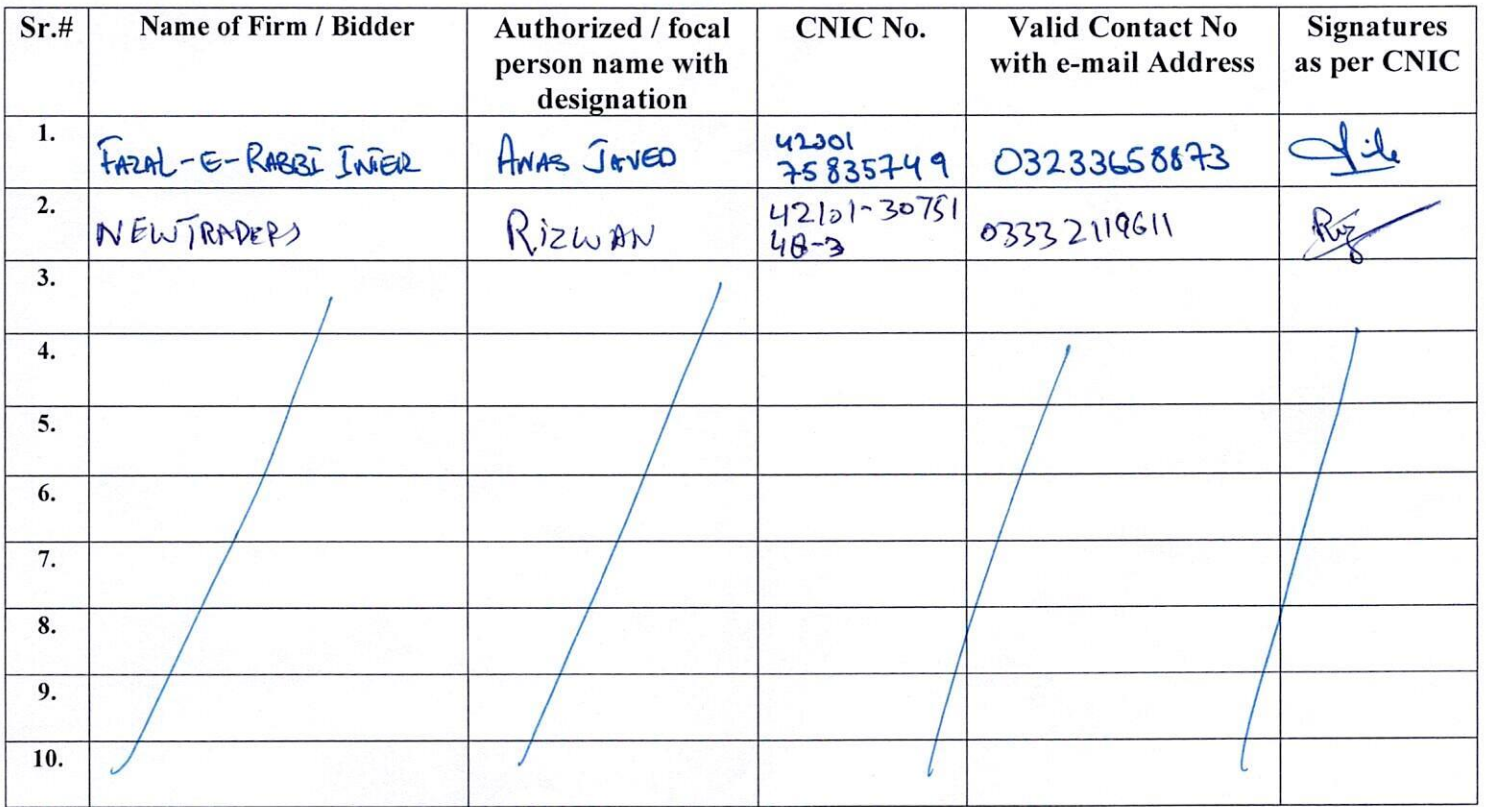 Sr.# Name of Firm / Bidder Authorized / focal person name with designation CNIC No. Valid Contact No with e-mail Address Signatures as per CNIC
1. FAZAL-E-RABBI INTER ANAS JAVED 42301 75835749 03233658873
2. NEW TRADERS RIZWAN 42101-30751 48-3 03332119611 Riz
3.
4.
5.
6.
7.
8.
9.
10.